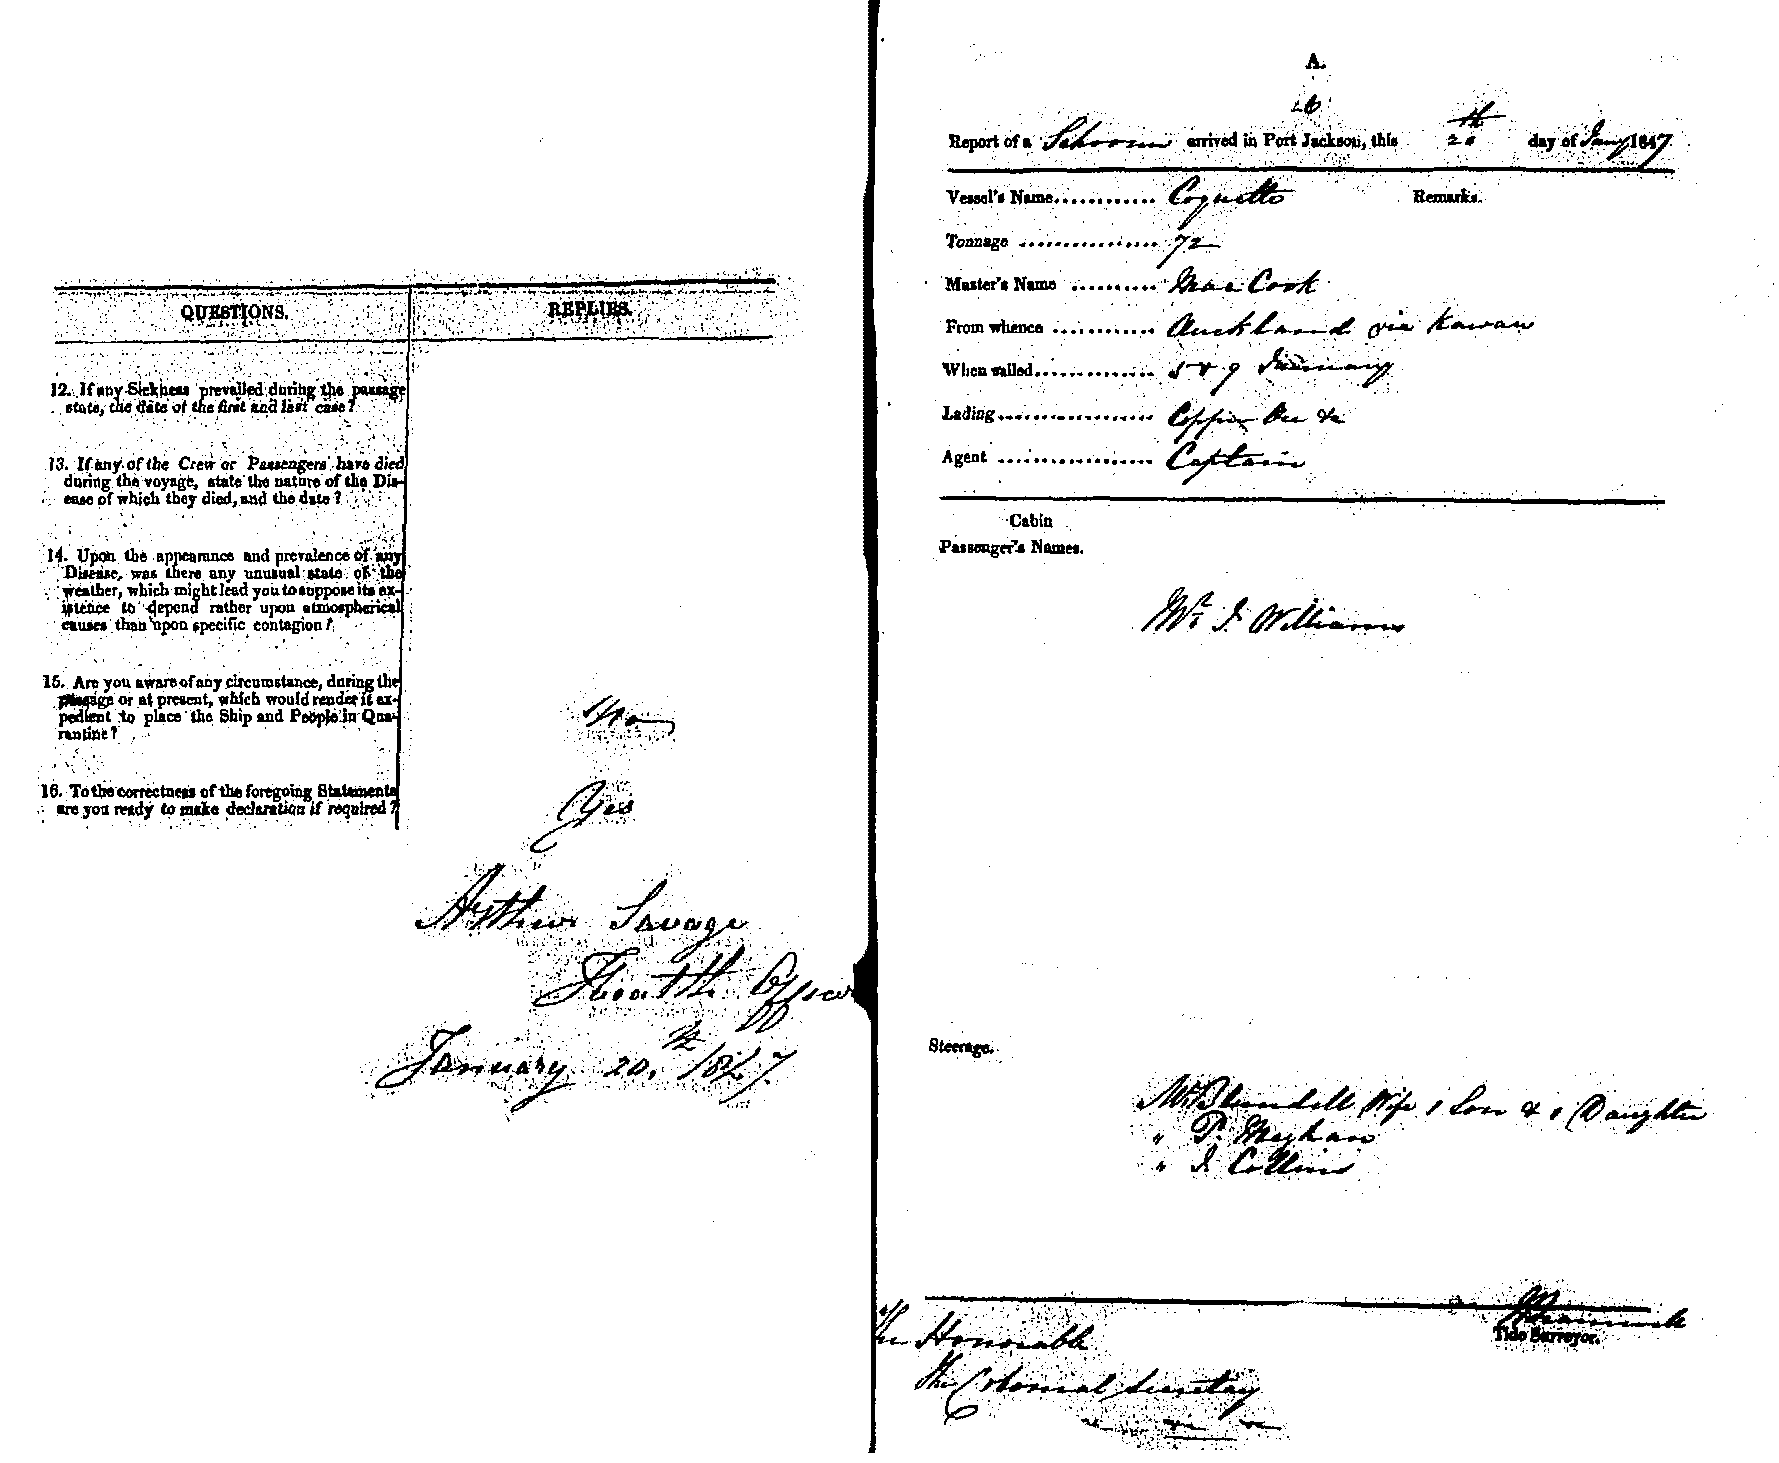 QUESTIONS.
REPLIES.
12. If any Sickness prevailed during the passage
state, the date of the first and last case?
13. If any of the Crew or Passengers have died
during the voyage, state the nature of the Dis-
ease of which they died, and the date?
14. Upon the appearance and prevalence of any
Disease, was there any unusual state of the
weather, which might lead you to suppose its ex-
istence to depend rather upon atmospherical
causes than upon specific contagion?
15. Are you aware of any circumstance, during the
passage or at present, which would render it ex-
pedient to place the Ship and People in Qua-
rantine?
No
16. To the correctness of the foregoing Statements
are you ready to make declaration if required?
Yes
Arthur Savage
Health Officer
January 20.th 1847.
A.
26
Report of a Schooner arrived in Port Jackson, this 20th day of Jany 1847
Vessel's Name............ Coquette
Remarks.
Tonnage ................ 72
Master's Name .......... Cook
From whence ............ Auckland via Kawau
When sailed.............. 5 & 9 January
Lading.................. Copper Ore &c
Agent .................. Captain
Cabin
Passenger's Names.
Mr. J. Williams
Steerage.
Mr Blundell Wife 1 Son & 1 Daughter
" P. Meghan
" J. Collins
Tide Surveyor.
The Honorable
the Colonial Secretary